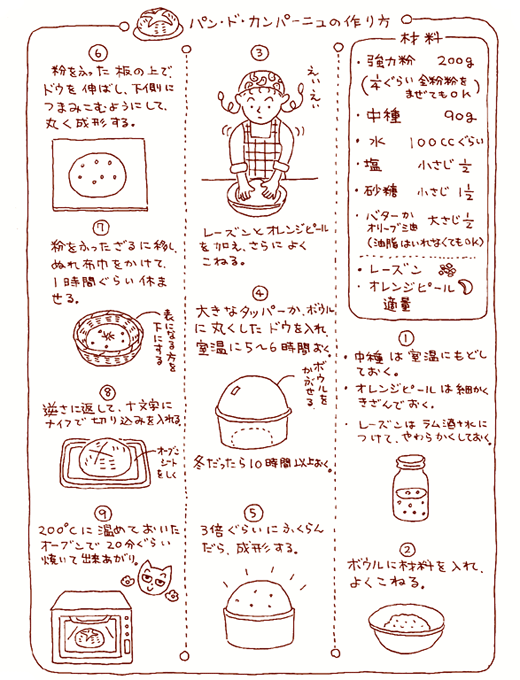 パン・ド・カンパーニュの作り方
材料
・強力粉 200g
(1/4ぐらい全粉粉を
まぜてもOK)
・中種 90g
・水 100CCぐらい
・塩 小さじ 1/2
・砂糖 小さじ 1 1/2
・バターか
オリーブ油 大さじ 1/2
(油脂はいれなくてもOK)
・レーズン
・オレンジピール
適量
①
・中種は室温にもどし
ておく。
・オレンジピールは細かく
きざんでおく。
・レーズンはラム酒と水に
つけて、やわらかくしておく。
②
ボウルに材料を入れ、
よくこねる。
③
えいえい
レーズンとオレンジピール
を加え、さらによく
こねる。
④
大きなタッパーか、ボウル
に丸くしたドウを入れ、
室温に5〜6時間おく。
ボウルを
かぶせる。
冬だったら10時間以上おく。
⑤
3倍ぐらいにふくらん
だら、成形する。
⑥
粉をふった板の上で、
ドウを伸ばし、下側に
つまみこむようにして、
丸く成形する。
⑦
粉をふったざるに移し、
ぬれ布巾をかけて、
1時間ぐらい休ま
せる。
表になる方を
下にする
⑧
逆さに返して、十文字に
ナイフで切り込みを入れる。
オーブン
シート
をしく
⑨
200°Cに温めておいた
オーブンで20分ぐらい
焼いて出来あがり。